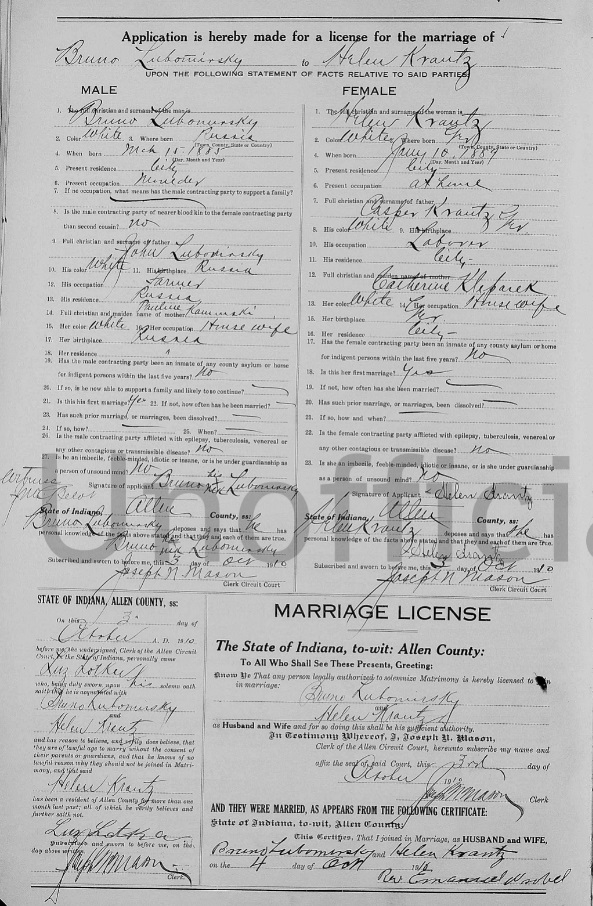 Application is hereby made for a license for the marriage of
Bruno Lubomirsky to Helen Krantz
UPON THE FOLLOWING STATEMENT OF FACTS RELATIVE TO SAID PARTIES
MALE
1. The full christian and surname of the man is
Bruno Lubomirsky
2. Color White 3. Where born Russia
(Town, County, State or Country)
4. When born Mch 15 - 1885
(Day, Month and Year)
5. Present residence City
6. Present occupation
7. If no occupation, what means has the male contracting party to support a family?
8. Is the male contracting party of nearer blood kin to the female contracting party
than second cousin? No
9. Full christian and surname of father
John Lubomirsky
10. His color White 11. His birthplace Russia
12. His occupation Farmer
13. His residence Russia
14. Full christian and maiden name of mother Pauline Kaminski
16. Her color White 16. Her occupation House wife
17. Her birthplace Russia
18. Her residence "
19. Has the male contracting party been an inmate of any county asylum or home
for indigent persons within the last five years? No
20. If so, is he now able to support a family and likely to so continue?
21. Is this his first marriage? Yes 22. If not, how often has he been married?
23. Has such prior marriage, or marriages, been dissolved?
24. If so, how? 25. When?
26. Is the male contracting party afflicted with epilepsy, tuberculosis, venereal or
any other contagious or transmissible disease? No
27. Is he an imbecile, feeble minded, idiotic or insane, or is he under guardianship
as a person of unsound mind? No
Signature of applicant Bruno his X mark Lubomirsky
Witness
State of Indiana, Allen County, ss:
Bruno Lubomirsky deposes and says that he has
personal knowledge of the facts above stated and that they and each of them are true.
Bruno his X mark Lubomirsky
Subscribed and sworn to before me, this 3 day of Oct 1910
Joseph N Mason
Clerk Circuit Court
FEMALE
1. The full christian and surname of the woman is
Helen Krantz
2. Color White 3. Where born Gr
(Town, County, State or Country)
4. When born Jany 10. 1889
(Day, Month and Year)
5. Present residence City
6. Present occupation at home
7. Full christian and surname of father
Casper Krantz
8. His color White 9. His birthplace Gr
10. His occupation Laborer
11. His residence City
12. Full christian and maiden name of mother
Catherine
13. Her color White 14. Her occupation House wife
15. Her birthplace Gr
16. Her residence City
17. Has the female contracting party been an inmate of any county asylum or home
for indigent persons within the last five years? No
18. Is this her first marriage? Yes
19. If not, how often has she been married?
20. Has such prior marriage, or marriages, been dissolved?
21. If so, how and when?
22. Is the female contracting party afflicted with epilepsy, tuberculosis, venereal or
any other contagious or transmissible disease? No
23. Is she an imbecile, feeble minded, idiotic or insane, or is she under guardianship
as a person of unsound mind? No
Signature of Applicant Helen Krantz
State of Indiana, Allen County, ss:
Helen Krantz deposes and says that she has
personal knowledge of the facts above stated and that they and each of them are true.
Helen Krantz
Subscribed and sworn to before me, this 3 day of Oct 1910
Joseph N Mason
Clerk Circuit Court
Unofficia
STATE OF INDIANA, ALLEN COUNTY, ss:
On this 3 day of
October A. D. 1910,
before me the undersigned, Clerk of the Allen Circuit
Court, in the State of Indiana, personally came
who, being duly sworn upon his solemn oath
saith that he is acquainted with
Bruno Lubomirsky
and
Helen Krantz
and has reason to believe, and verily does believe, that
they are of lawful age to marry without the consent of
their parents or guardians, and that he knows of no
lawful reason why they should not be joined in Matri-
mony, and that said
Helen Krantz
has been a resident of Allen County for more than one
month last past; all of which he verily believes and
further saith not.
Subscribed and sworn to before me, on the
day above written.
Joseph N Mason
Clerk.
MARRIAGE LICENSE
The State of Indiana, to-wit: Allen County:
To All Who Shall See These Presents, Greeting:
Know Ye That any person legally authorized to solemnize Matrimony is hereby licensed to join
in marriage:
Bruno Lubomirsky
and
Helen Krantz
as Husband and Wife and for so doing this shall be his sufficient authority.
In Testimony Whereof, I, Joseph N. Mason,
Clerk of the Allen Circuit Court, hereunto subscribe my name and
affix the seal of said Court, this 3rd day of
October 1910
Joseph N Mason Clerk
AND THEY WERE MARRIED, AS APPEARS FROM THE FOLLOWING CERTIFICATE:
State of Indiana, to-wit, Allen County:
This Certifies, That I joined in Marriage, as HUSBAND and WIFE,
Bruno Lubomirsky and Helen Krantz
on the 4 day of Oct 1910
Rev Emanuel